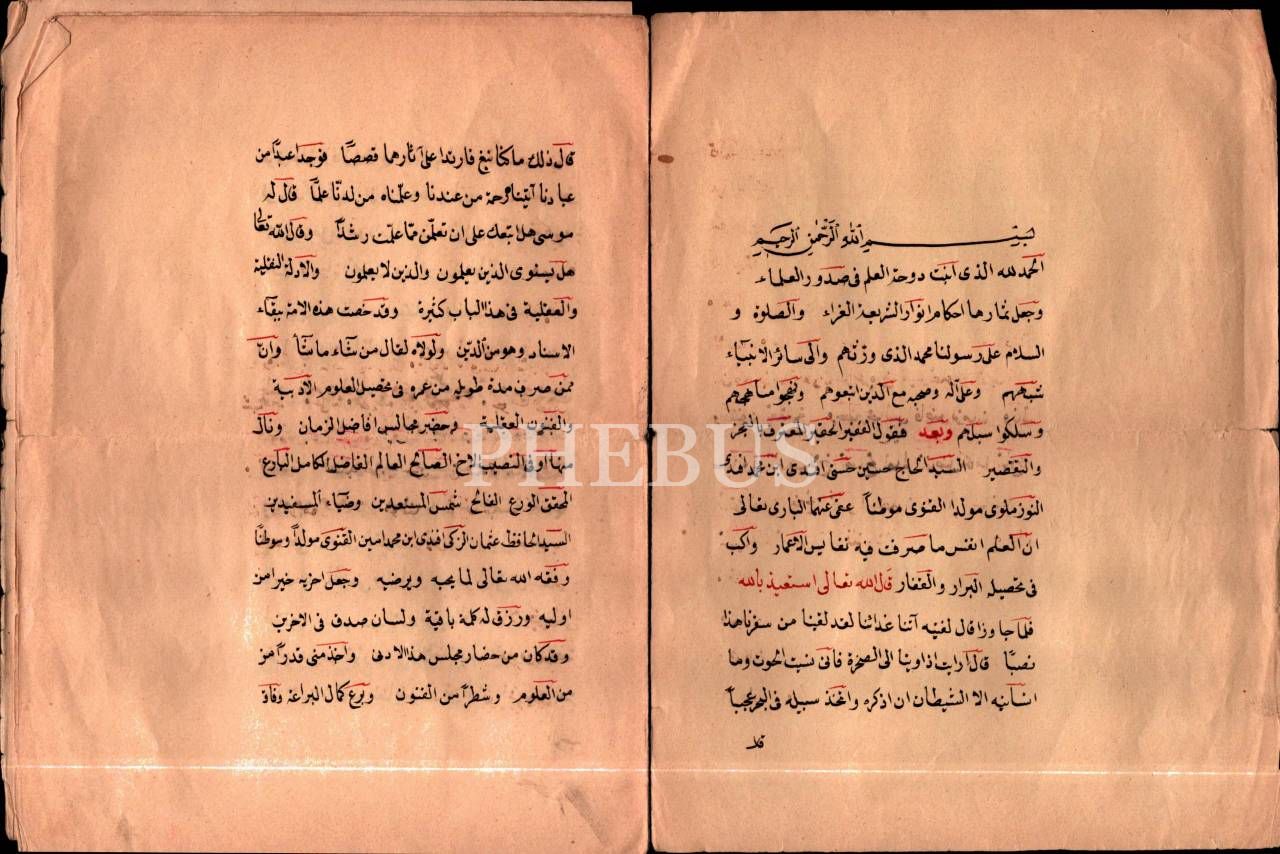 بسم الله الرحمن الرحيم
الحمد لله الذى انبت دوحة العلم فى صدور العلماء
وجعل ثمارها احكام انوار الشريعة الغراء والصلوة و
السلام على رسولنا محمد الذى ورثهم والى سائر الانبياء
شبههم وعلى اله وصحبه مع الذين اتبعوهم ونهجوا مناهجهم
وسلكوا سبلهم وبعد فيقول الفقير الحقير المعترف بالعجز
والتقصير السيد الحاج حسين حسنى افندى ابن محمد افندى
مولدا القنوى موطنا عفى عنهما البارى تعالى
ان العلم انفس ما صرف فيه نفايس الاعمار واكب
فى تحصيله البرار والقفار قال الله تعالى استعيذ بالله
فلما جاوزا قال لفتيه آتنا غدائنا لقد لقينا من سفرنا هذا
نصبا قال ارايت اذ اوينا الى الصخرة فانى نسيت الحوت وما
انسانيه الا الشيطان ان اذكره واتخذ سبيله فى البحر عجبا
قال ذلك ما كنا نبغ فارتدا على آثارهما قصصا فوجدا عبدا من
عبادنا آتيناه رحمة من عندنا وعلمناه من لدنا علما قال له
موسى هل اتبعك على ان تعلمن مما علمت رشدا وقال الله تعالى
هل يستوى الذين يعلمون والذين لا يعلمون والادلة النقلية
والعقلية فى هذا الباب كثيرة وقد خصت هذه الامة ببقاء
الاسناد وهو من الدين ولولاه لقال من شاء ما شاء وان
ممن صرف مدة طويلة من عمره فى تحصيل العلوم الادبية
والفنون العقلية وحضر مجالس افاضل الزمان ونال
منها اوفى النصيب الاخ الصالح العالم الفاضل الكامل البارع
المحقق الورع الفالح شمس المستعدين وضياء المستفيدين
السيد الحافظ عثمان الزكى افندى ابن محمد امين القنوى مولدا وموطنا
وفقه الله تعالى لما يحبه ويرضيه وجعل اخريه خيرا من
اوليه ورزق له كلمة باقية ولسان صدق فى الاخرين
وقد كان من حضار مجلس هذا الادنى واخذ منى قدرا من
من العلوم وشطرا من الفنون وبرع كمال البراعة وفاق